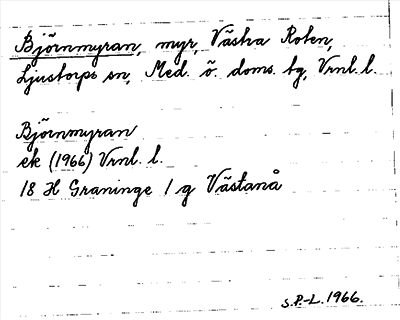 Björnmyran, myr, Västra Roten,
Ljustorps sn, Med. ö. doms. tg, Vrnl. l.
Björnmyran
ek (1966) Vrnl. l.
18 H Graninge 1 g Västanå
S.P.-L. 1966.